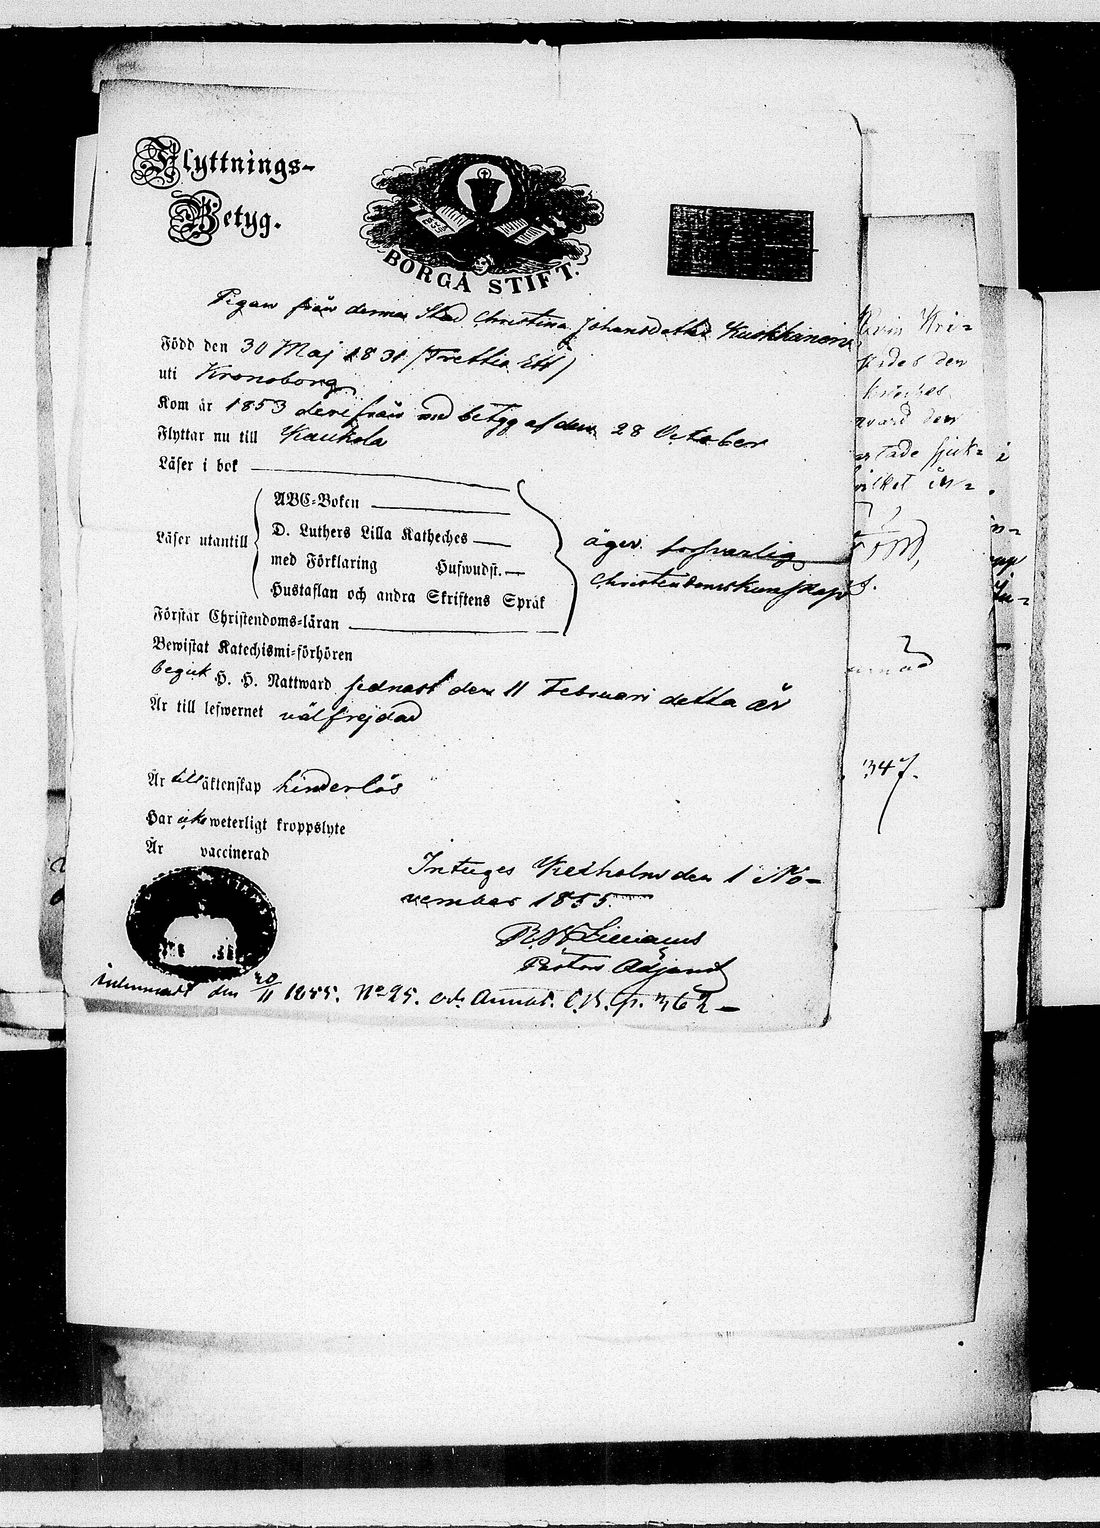 Flyttnings-
Betyg.
BORGÅ STIFT.
Pigan från denna Stad Christina Johansdotter Kuokkanen
Född den 30 Maj 1831 (Trettio Ett)
uti Kronoborg
Kom år 1853 derifrån med betyg af den 28 October
Flyttar nu till Kaukola
Läser i bok
Läser utantill
ABC-Boken
D. Luthers Lilla Katheches
med Förklaring Hufwudst.
Hustaflan och andra Skriftens Språk
äger försvarlig
Christendomskunskap
Förstår Christendoms-läran
Bewistat Katechismi-förhören
begick H. H. Nattward sednast den 11 Februari detta år
Är till lefwernet välfrejdad
Är till äktenskap hinderlös
Har icke weterligt kroppslyte
Är vaccinerad
Intygas Kexholm den 1 No-
vember 1855
Pastors Adjunct
den 20/11 1855. No 25. och Annot. C.B. p. 362 -
Kri-
den
den
sjuk- i
347.